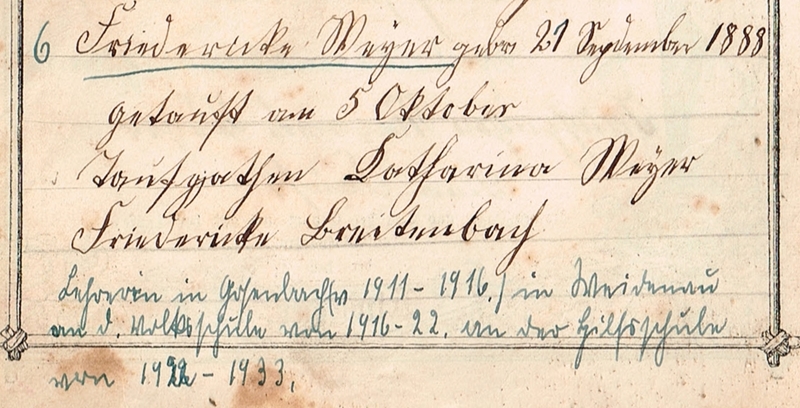 6 Friedericke Weyer gebr 21 September 1888
getauft am 5 Oktober
Taufpathen Catharina Weyer
Friedericke Breitenbach
Lehrerin in Gosenbach (v 1911 - 1916.) in Weidenau
an d. Volksschule von 1916 - 22. an der Hilfsschule
von 1922 - 1933.